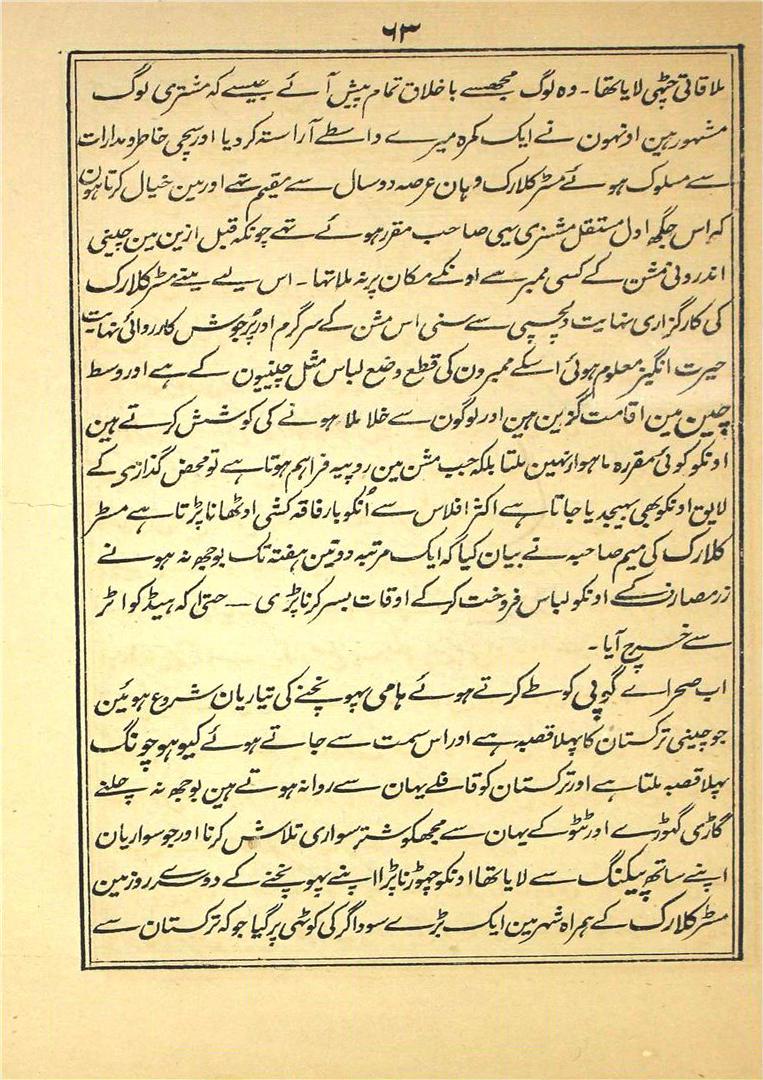 ۶۳
ملاقاتی چٹھی لایا تھا ۔ وہ لوگ مجھسے باخلاق تمام پیش آئے جیسے کہ مشنری لوگ
مشہور ہین اونھون نے ایک کمرہ میرے واسطے آراستہ کر دیا اور سچی خاطر و مدارات
سے مسلوک ہوئے مسٹر کلارک وہان عرصہ دو سال سے مقیم تھے اور مین خیال کرتا ہون
کہ اس جگھ اول مستقل مشنری یہی صاحب مقرر ہوئے تھے چونکہ قبل ازین مین چینی
اندرونی مشن کے کسی ممبر سے اونکے مکان پر نہ ملا تھا ۔ اس لیے مینے مسٹر کلارک
کی کارگزاری نہایت دلچسپی سے سنی اس مشن کے سرگرم اور پُرجوش کارروائی نہایت
حیرت انگیز معلوم ہوئی اسکے ممبرون کی قطع وضع لباس مثل چینیون کے ہے اور وسط
چین مین اقامت گزین ہین اور لوگون سے خلا ملا ہونے کی کوشش کرتے ہین
اونکو کوئی مقررہ ماہوار نہین ملتا بلکہ جب مشن مین روپیہ فراہم ہوتا ہے تو محض گذاری کے
لایق اونکو بھی بھیجدیا جاتا ہے اکثر افلاس سے اُنکو بار فاقہ کشی اوٹھانا پڑتا ہے مسٹر
کلارک کی میم صاحبہ نے بیان کیا کہ ایک مرتبہ دو تین ہفتہ تک بوجھ نہ ہونے
زر مصارف کے اونکو لباس فروخت کرکے اوقات بسر کرنا پڑی ــ حتیٰ کہ ہیڈ کواٹر
سے خرچ آیا ۔
اب صحراے گوبی کو طے کرتے ہوئے ہامی پہونچنے کی تیاریان شروع ہوئین
جو چینی ترکستان کا پہلا قصبہ ہے اور اس سمت سے جاتے ہوئے کیو ہو چونگ
پہلا قصبہ ملتا ہے اور ترکستان کو قافلے یہان سے روانہ ہوتے ہین بوجھ نہ چلنے
گاڑی گھوڑے اور ٹٹو کے یہان سے مجھکو شتر سواری تلاش کرنا اور جو سواریان
اپنے ساتھ پیکنگ سے لایا تھا اونکو چھوڑنا پڑا اپنے پہونچنے کے دوسرے روز مین
مسٹر کلارک کے ہمراہ شہر مین ایک بڑے سوداگر کی کوٹھی پر گیا جو کہ ترکستان سے